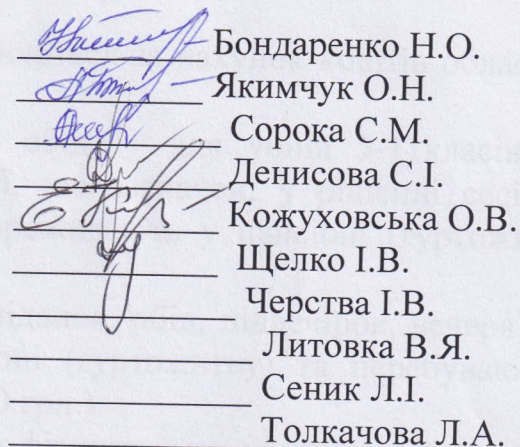 Бондаренко Н.О.
Якимчук О.Н.
Сорока С.М.
Денисова С.І.
Кожуховська О.В.
Щелко І.В.
Черства І.В.
Литовка В.Я.
Сеник Л.І.
Толкачова Л.А.